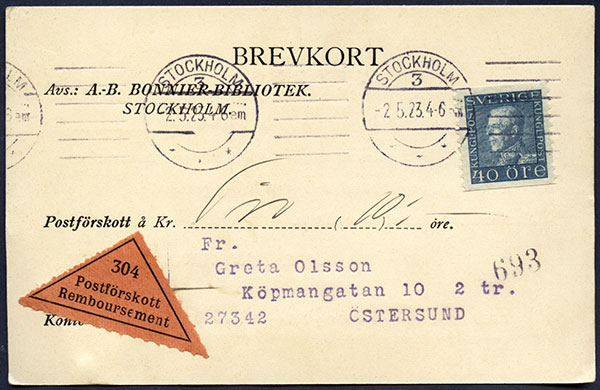 BREVKORT
STOCKHOLM
3
-2.5.23.4-6em
STOCKHOLM
3
-2.5.23.4-6
LM
6 em
Avs.: A.-B. BONNIER-BIBLIOTEK.
STOCKHOLM.
SVERIGE
KUNGL. POST
KUNGL. POST
40 ÖRE
Postförskott å Kr. öre.
Fr.
Greta Olsson
Köpmangatan 10 2 tr.
27342 ÖSTERSUND
693
304
Postförskott
Remboursement
Konto